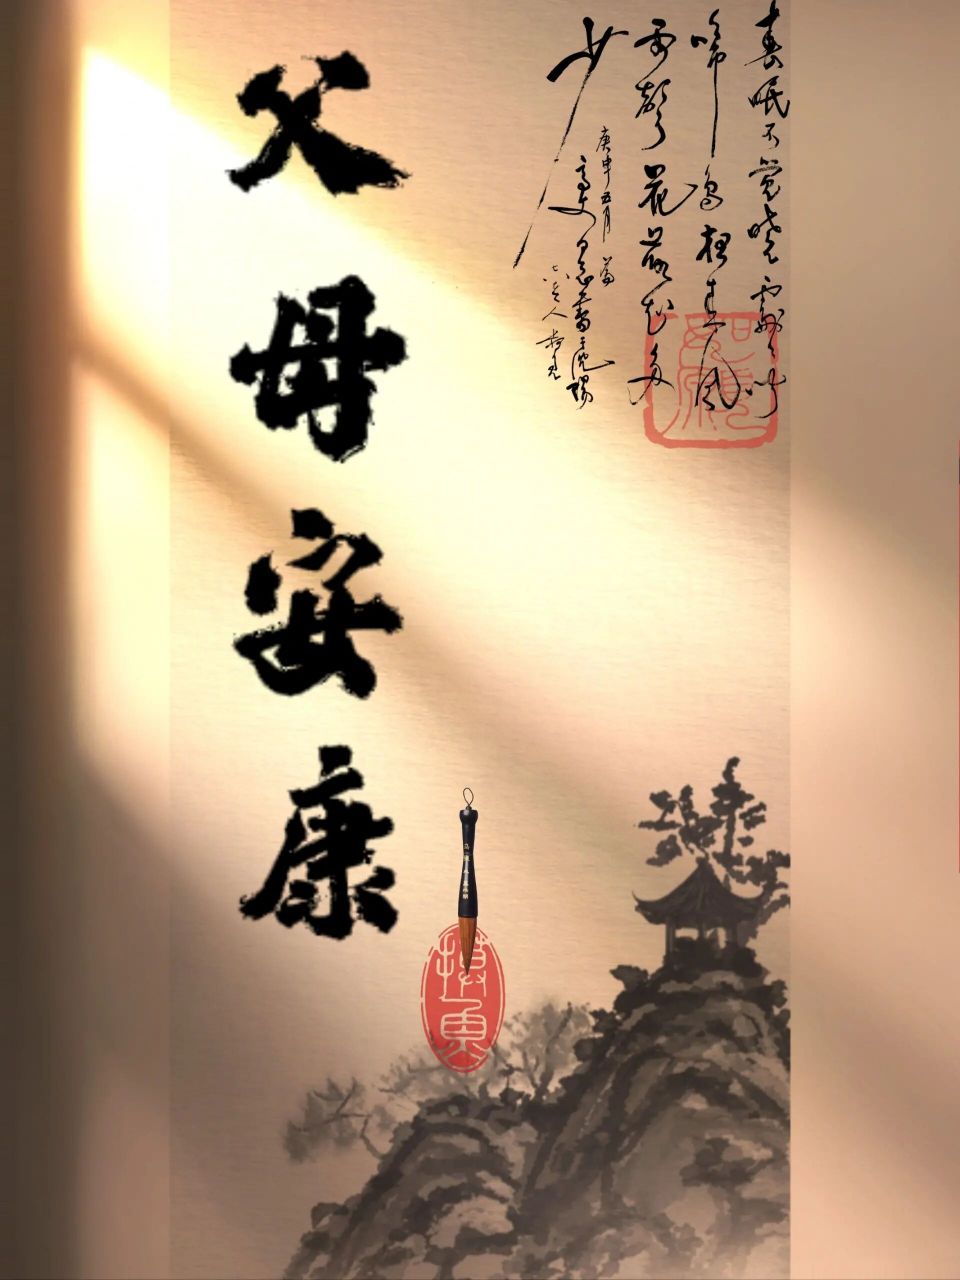 春眠不觉晓處々闻
啼鸟夜来风
雨聲花落知多
少
庚申五月
父母安康